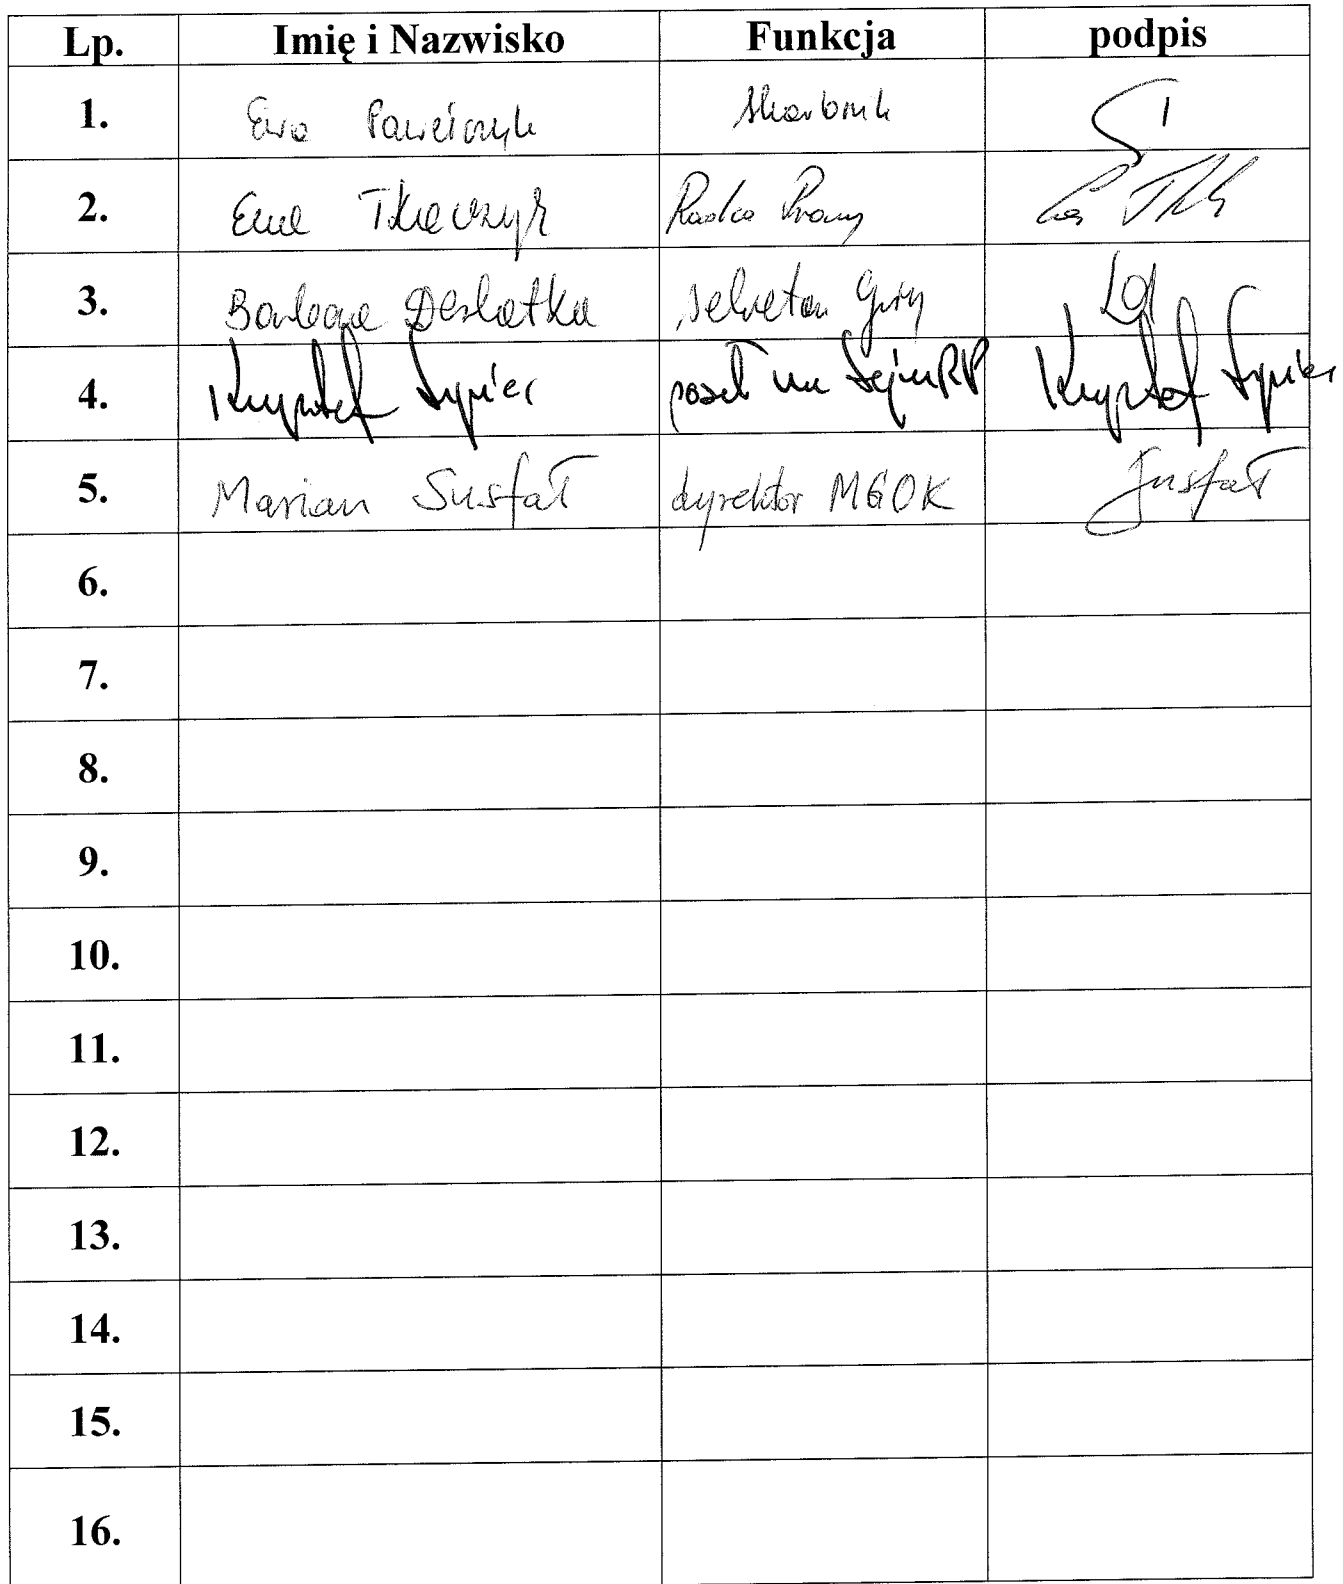 Lp. Imię i Nazwisko Funkcja podpis
1. Ewa Pawełczyk Skarbnik
2. Ewa Tkaczyk Radca Prawny
3. Barbara Deslatka sekretarz Gminy
4. Krzysztof Lipiec poseł na Sejm RP Krzysztof Lipiec
5. Marian Susfał dyrektor MGOK Susfał
6.
7.
8.
9.
10.
11.
12.
13.
14.
15.
16.